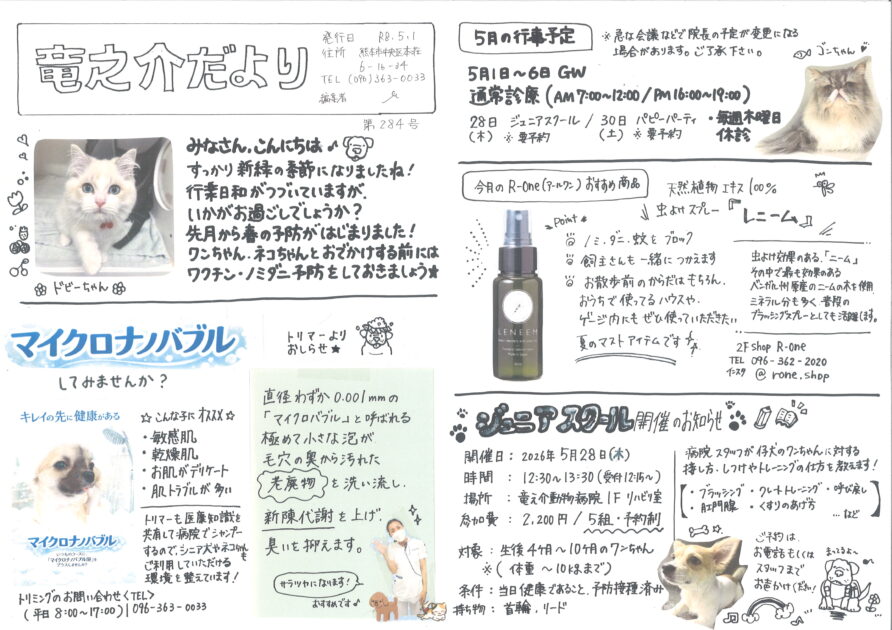 竜之介だより
発行日 R8.5.1
住所 熊本市中央区本荘
6-16-34
TEL (096)363-0033
編集者
第284号
みなさん、こんにちは
すっかり新緑の季節になりましたね！
行楽日和がつづいていますが、
いかがお過ごしでしょうか？
先月から春の予防がはじまりました！
ワンちゃん、ネコちゃんとおでかけする前には
ワクチン・ノミダニ予防をしておきましょう★
ドビーちゃん
マイクロナノバブル
してみませんか？
トリマーより
おしらせ★
キレイの先に健康がある
マイクロナノバブル
いつものコースに
「マイクロナノバブル浴」を
プラスしませんか？
☆こんな子にオススメ☆
・敏感肌
・乾燥肌
・お肌がデリケート
・肌トラブルが多い
トリマーも医療知識を
共有して病院でシャンプー
するので、シニア犬やネコちゃんも
ご利用していただける
環境を整えています！
トリミングのお問い合わせ<TEL>
(平日8:00~17:00) | 096-363-0033
直径わずか0.001mmの
「マイクロバブル」と呼ばれる
極めて小さな泡が
毛穴の奥から汚れた
老廃物を洗い流し、
新陳代謝を上げ
臭いを抑えます。
サラツヤになります！
おすすめです
5月の行事予定
※急な会議などで院長の予定が変更になる
場合があります。ご了承下さい。
ゴンちゃん
5月1日~6日 GW
通常診療(AM7:00~12:00/PM16:00~19:00)
28日 ジュニアスクール / 30日 パピーパーティ ・毎週木曜日
(木) ※要予約 (土) ※要予約 休診
今月のR-One(アールワン)おすすめ商品
天然植物エキス100%
虫よけスプレー『レニーム』
Point
ノミ・ダニ・蚊をブロック
飼主さんも一緒につかえます
お散歩前のからだはもちろん、
おうちで使ってるハウスや、
ゲージ内にもぜひ使っていただきたい
夏のマストアイテムです
LENEEM
虫よけ効果のある、「ニーム」
その中で最も効果のある
ベンガル州原産のニームの木を使用
ミネラル分も多く、普段の
ブラッシングスプレーとしても活躍します。
2F shop R-One
TEL 096-362-2020
インスタ @rone.shop
ジュニアスクール開催のお知らせ
開催日：2026年5月28日(木)
時間：12:30~13:30(受付12:15~)
場所：竜之介動物病院1F リハビリ室
参加費：2,200円/5組・予約制
対象：生後4ヶ月~10ヶ月のワンちゃん
※(体重~10kgまで)
条件：当日健康であること、予防接種済み
持ち物：首輪、リード
病院スタッフが仔犬のワンちゃんに対する
接し方、しつけやトレーニングの仕方を教えます！
・ブラッシング・クレートトレーニング・呼び戻し
・肛門腺・くすりのあげ方
…など
ご予約は、
お電話もしくは
スタッフまで
お声かけください！
まってるよ~